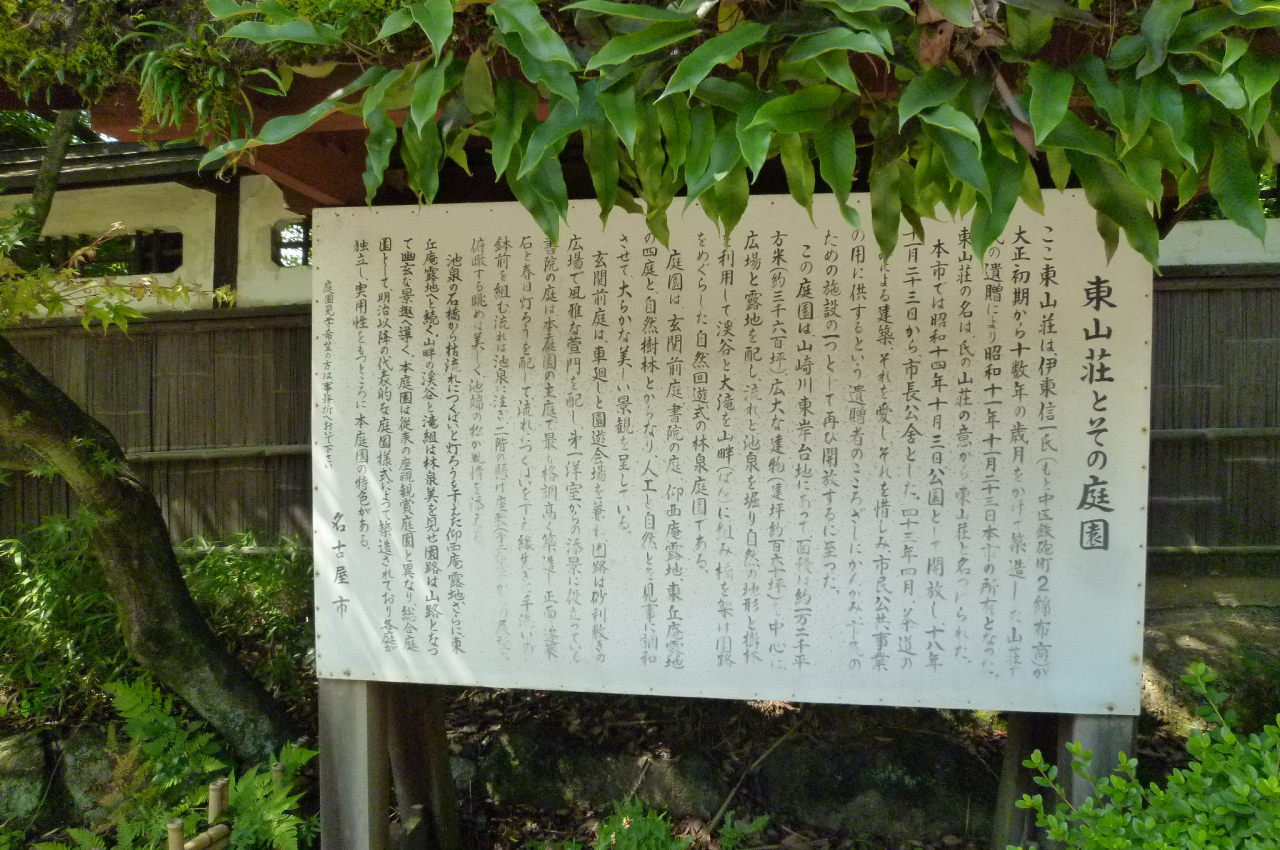 東山荘とその庭園
ここ東山荘は伊東信一氏(もと中区鉄砲町2綿布商)が
大正初期から十数年の歳月をかけて築造した山荘で
氏の遺贈により昭和十一年十一月二十三日本市の所有となった。
東山荘の名は氏の山荘の意から東山荘と名づけられた。
本市では昭和十四年十月三日公園として開放し、十八年
二月二十三日から市長公舎とした。四十三年四月、茶道の
による建築、それを愛しそれを惜しみ、市民公共事業
の用に供するという、遺贈者のこころざしにかんがみ
ための施設の一つとして再び開放するに至った。
この庭園は山崎川東岸台地にあって面積は約一万二千平
方米(約三千六百坪)広大な建物(建坪約百六坪)を中心に
広場と露地を配し、流れと池泉を堀り自然の地形と樹林
利用して渓谷と大滝を山畔に組み橋を架け園路
をめぐらした自然回遊式の林泉庭園である。
庭園は玄関前庭、書院の庭、仰西庵露地、東丘庵露地
の四庭と自然樹林とからなり、人工と自然とを見事に調和
させて大らかな美しい景観を呈している。
玄関前庭は、車廻しと園遊会場を兼ね、園路は砂利敷きの
広場で風雅な萱門を配し、第一洋室からの添景に役立っている
書院の庭は本庭園の主庭で最も格調高く築造し、正面に蓬莱
石と春日灯ろうを配して流れにつくばいをすえ縁先き手洗いの
鉢前を組む流れは池泉に注ぎ二階の懸け座敷
俯瞰する眺めは美しく、池端の松が風情を添え
池泉の石橋から枯流れにつくばいと灯ろうを干もた仰西庵露地さらに東
丘庵露地へと続く山畔の渓谷と滝組は林泉美を見せ園路は山路となっ
て幽玄な景趣へ導く、本庭園は従来の座視観賞庭園と異なり、総合庭
園として、明治以降の代表的な庭園様式によって築造されており各庭が
独立し実用性をもつところに本庭園の特色がある。
庭園見学希望の方は事務所へおいで下さい
名古屋市